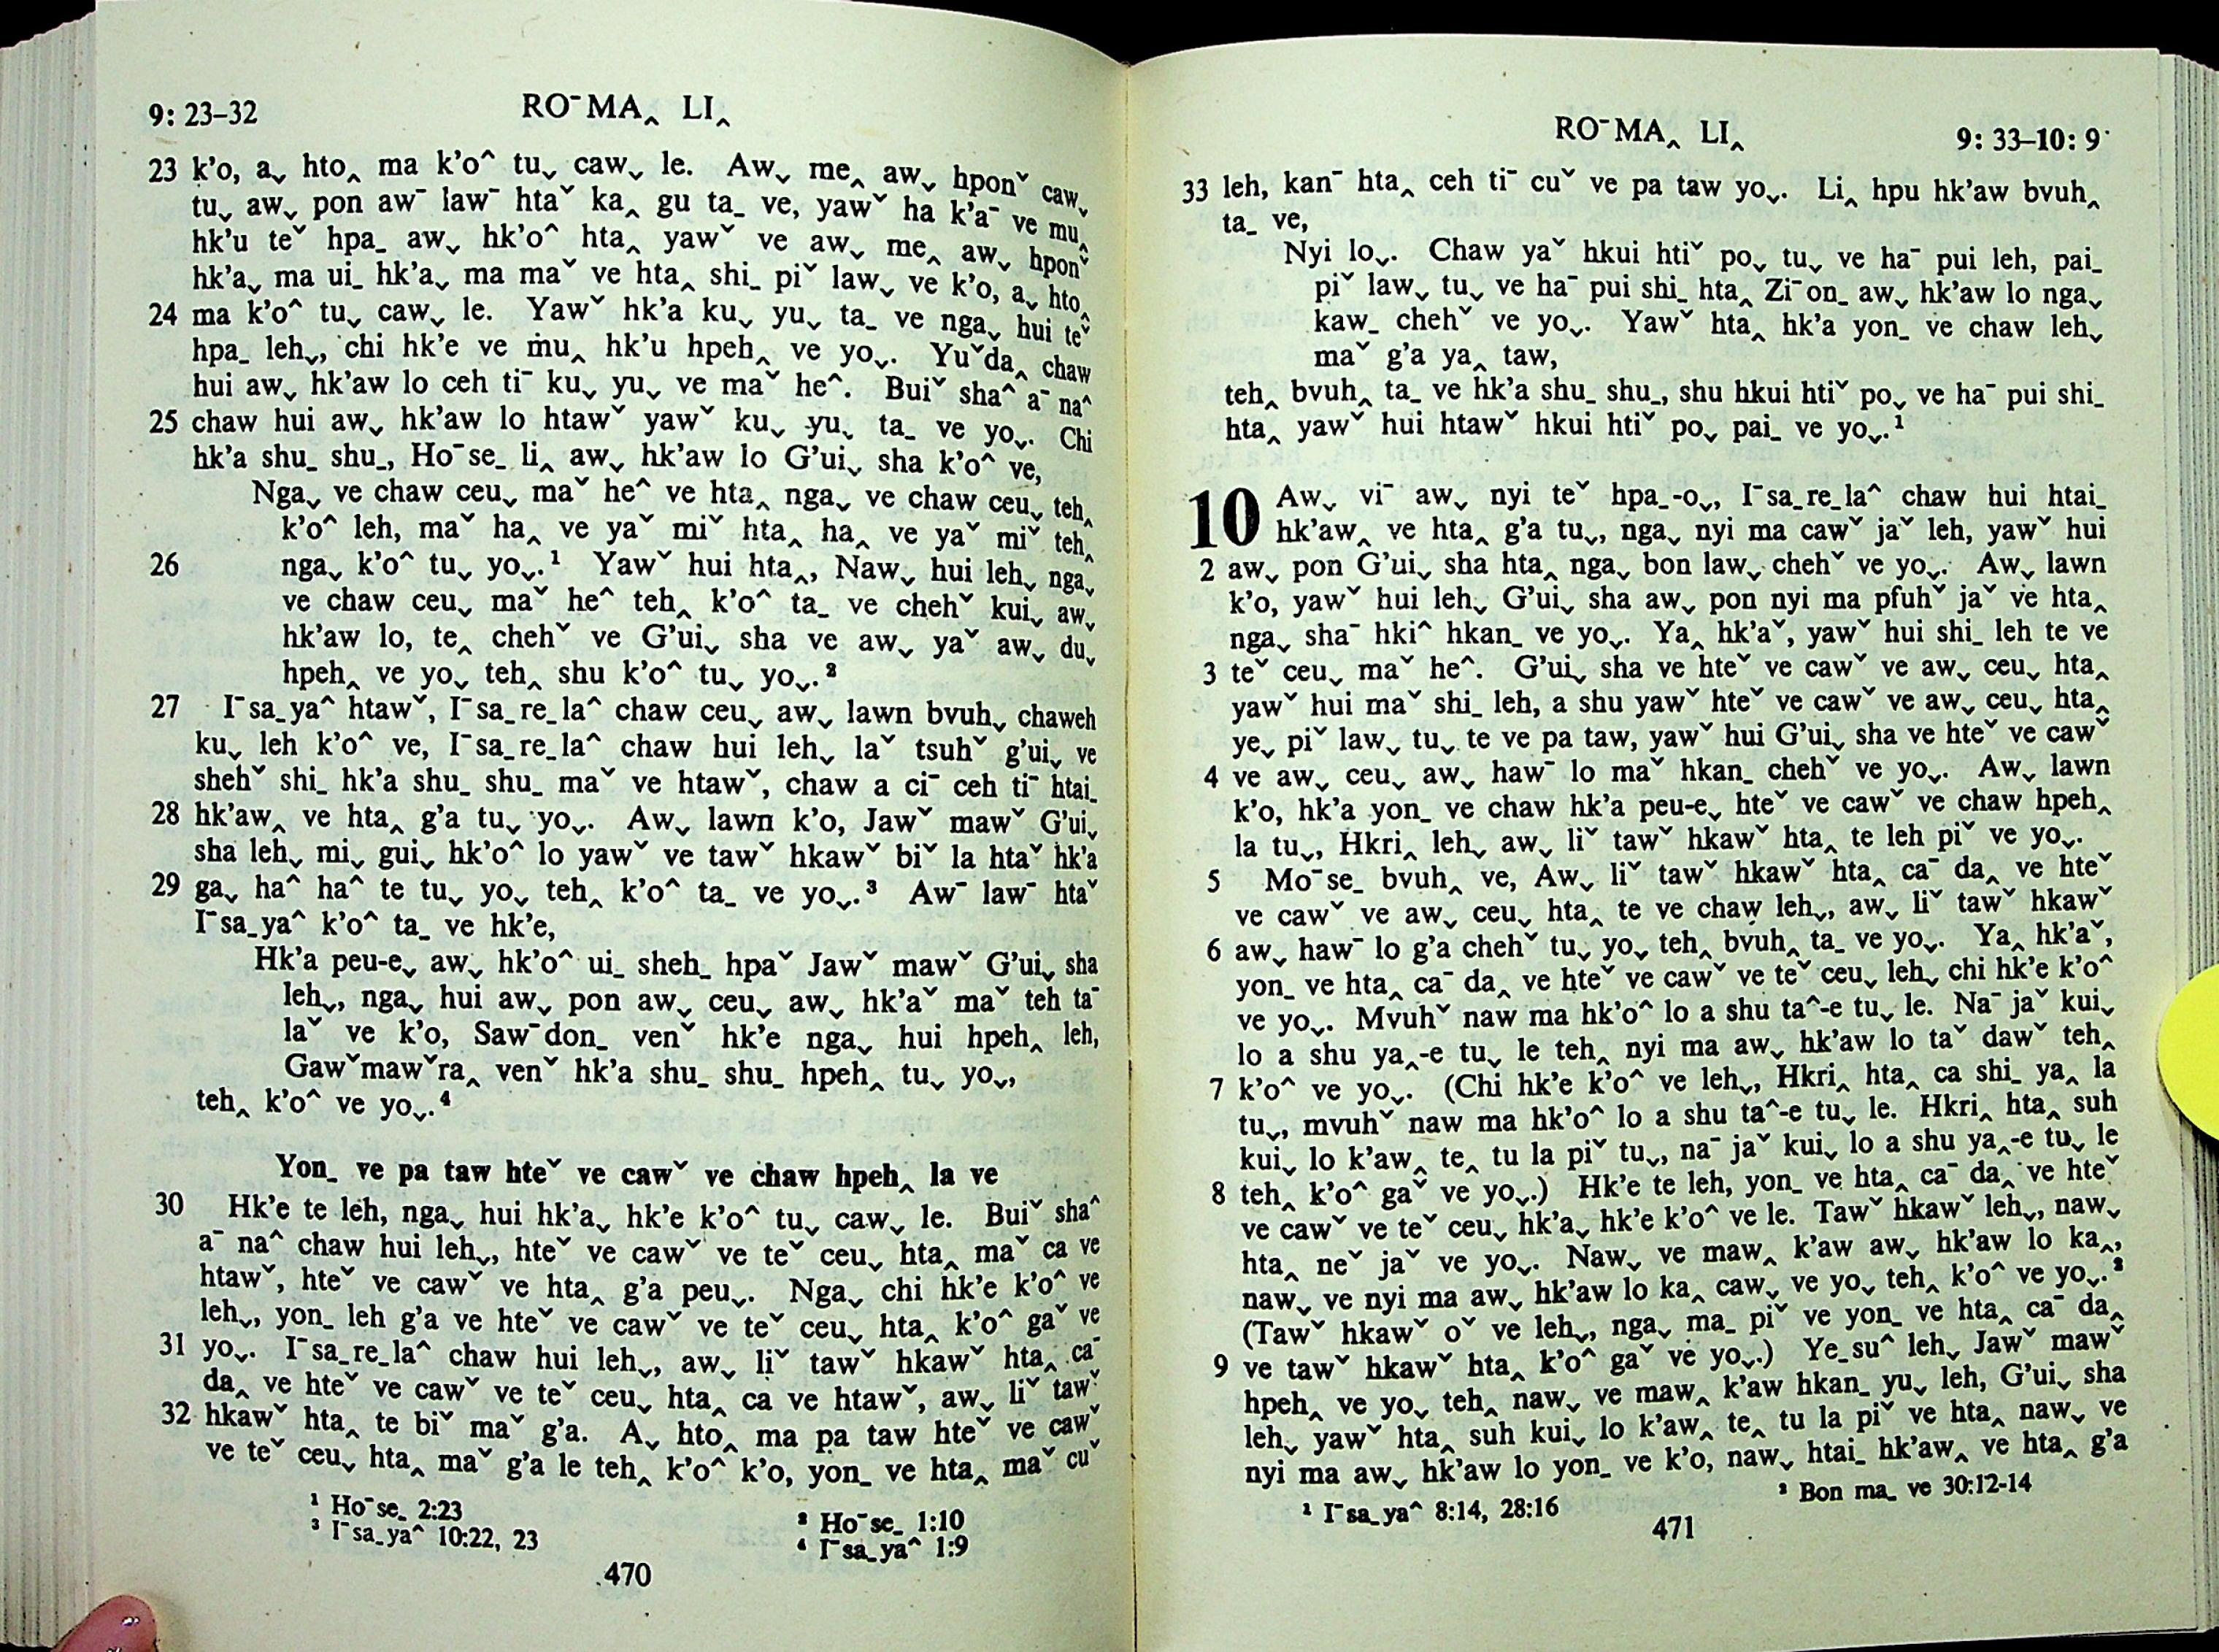 9: 23–32
RO¯MA‸ LI‸
23 k'o, a˯ hto‸ ma k'o^ tu˯ caw˯ le. Aw˯ me‸ aw˯ hponˇ caw˯
tu˯ aw˯ pon aw¯ law¯ htaˇ ka‸ gu ta_ ve, yawˇ ha k'a¯ ve mu‸
hk'u teˇ hpa_ aw˯ hk'o^ hta‸ yawˇ ve aw˯ me‸ aw˯ hponˇ
hk'a˯ ma ui_ hk'a˯ ma maˇ ve hta‸ shi_ piˇ law˯ ve k'o, a˯ hto‸
24 ma k'o^ tu˯ caw˯ le. Yawˇ hk'a ku˯ yu˯ ta_ ve nga˯ hui teˇ
hpa_ leh˯, chi hk'e ve mu‸ hk'u hpeh‸ ve yo˯. Yuˇda‸ chaw
hui aw˯ hk'aw lo ceh ti¯ ku˯ yu˯ ve maˇ he^. Buiˇ sha^ a¯ na^
25 chaw hui aw˯ hk'aw lo htawˇ yawˇ ku˯ yu˯ ta_ ve yo˯. Chi
hk'a shu_ shu_, Ho¯se_ li‸ aw˯ hk'aw lo G'ui˯ sha k'o^ ve,
Nga˯ ve chaw ceu˯ maˇ he^ ve hta‸ nga˯ ve chaw ceu˯ teh‸
k'o^ leh, maˇ ha‸ ve yaˇ miˇ hta‸ ha‸ ve yaˇ miˇ teh‸
26 nga˯ k'o^ tu˯ yo˯.¹ Yawˇ hui hta‸, Naw˯ hui leh˯ nga˯
ve chaw ceu˯ maˇ he^ teh‸ k'o^ ta_ ve chehˇ kui˯ aw˯
hk'aw lo, te‸ chehˇ ve G'ui˯ sha ve aw˯ yaˇ aw˯ du˯
hpeh‸ ve yo˯ teh‸ shu k'o^ tu˯ yo˯.²
27 I¯sa_ya^ htawˇ, I¯sa_re_la^ chaw ceu˯ aw˯ lawn bvuh˯ chaweh
ku˯ leh k'o^ ve, I¯sa_re_la^ chaw hui leh˯ laˇ tsuhˇ g'ui˯ ve
shehˇ shi_ hk'a shu_ shu_ maˇ ve htawˇ, chaw a ci¯ ceh ti¯ htai_
28 hk'aw‸ ve hta‸ g'a tu˯ yo˯. Aw˯ lawn k'o, Jawˇ mawˇ G'ui˯
sha leh˯ mi˯ gui˯ hk'o^ lo yawˇ ve tawˇ hkawˇ biˇ la htaˇ hk'a
29 ga˯ ha^ ha^ te tu˯ yo˯ teh‸ k'o^ ta_ ve yo˯.³ Aw¯ law¯ htaˇ
I¯sa_ya^ k'o^ ta_ ve hk'e,
Hk'a peu-e˯ aw˯ hk'o^ ui_ sheh_ hpaˇ Jawˇ mawˇ G'ui˯ sha
leh˯, nga˯ hui aw˯ pon aw˯ ceu˯ aw˯ hk'aˇ maˇ teh ta¯
laˇ ve k'o, Saw¯don_ venˇ hk'e nga˯ hui hpeh‸ leh,
Gawˇmawˇra‸ venˇ hk'a shu_ shu_ hpeh‸ tu˯ yo˯,
teh‸ k'o^ ve yo˯.⁴
Yon_ ve pa taw hteˇ ve cawˇ ve chaw hpeh‸ la ve
30 Hk'e te leh, nga˯ hui hk'a˯ hk'e k'o^ tu˯ caw˯ le. Buiˇ sha^
a¯ na^ chaw hui leh˯, hteˇ ve cawˇ ve teˇ ceu˯ hta‸ maˇ ca ve
htawˇ, hteˇ ve cawˇ ve hta‸ g'a peu˯. Nga˯ chi hk'e k'o^ ve
leh˯, yon_ leh g'a ve hteˇ ve cawˇ ve teˇ ceu˯ hta‸ k'o^ gaˇ ve
31 yo˯. I¯sa_re_la^ chaw hui leh˯, aw˯ liˇ tawˇ hkawˇ hta‸ ca¯
da‸ ve hteˇ ve cawˇ ve teˇ ceu˯ hta‸ ca ve htawˇ, aw˯ liˇ tawˇ
32 hkawˇ hta‸ te biˇ maˇ g'a. A˯ hto‸ ma pa taw hteˇ ve cawˇ
ve teˇ ceu˯ hta‸ maˇ g'a le teh‸ k'o^ k'o, yon_ ve hta‸ maˇ cuˇ
¹ Ho¯se_ 2:23
² Ho¯se_ 1:10
³ I¯sa_ya^ 10:22, 23
⁴ I¯sa_ya^ 1:9
470
RO¯MA‸ LI‸
9: 33–10: 9
33 leh, kan¯ hta‸ ceh ti¯ cuˇ ve pa taw yo˯. Li‸ hpu hk'aw bvuh‸
ta_ ve,
Nyi lo˯. Chaw yaˇ hkui htiˇ po˯ tu˯ ve ha¯ pui leh, pai_
piˇ law˯ tu˯ ve ha¯ pui shi_ hta‸ Zi¯on_ aw˯ hk'aw lo nga˯
kaw_ chehˇ ve yo˯. Yawˇ hta‸ hk'a yon_ ve chaw leh˯
maˇ g'a ya‸ taw,
teh‸ bvuh‸ ta_ ve hk'a shu_ shu_, shu hkui htiˇ po˯ ve ha¯ pui shi_
hta‸ yawˇ hui htawˇ hkui htiˇ po˯ pai_ ve yo˯.¹
10 Aw˯ vi¯ aw˯ nyi teˇ hpa_-o˯, I¯sa_re_la^ chaw hui htai_
hk'aw‸ ve hta‸ g'a tu˯, nga˯ nyi ma cawˇ jaˇ leh, yawˇ hui
2 aw˯ pon G'ui˯ sha hta‸ nga˯ bon law˯ chehˇ ve yo˯. Aw˯ lawn
k'o, yawˇ hui leh˯ G'ui˯ sha aw˯ pon nyi ma pfuhˇ jaˇ ve hta‸
nga˯ sha¯ hki^ hkan_ ve yo˯. Ya‸ hk'aˇ, yawˇ hui shi_ leh te ve
3 teˇ ceu˯ maˇ he^. G'ui˯ sha ve hteˇ ve cawˇ ve aw˯ ceu˯ hta‸
yawˇ hui maˇ shi_ leh, a shu yawˇ hteˇ ve cawˇ ve aw˯ ceu˯ hta‸
ye˯ piˇ law˯ tu˯ te ve pa taw, yawˇ hui G'ui˯ sha ve hteˇ ve cawˇ
4 ve aw˯ ceu˯ aw˯ haw¯ lo maˇ hkan_ chehˇ ve yo˯. Aw˯ lawn
k'o, hk'a yon_ ve chaw hk'a peu-e˯ hteˇ ve cawˇ ve chaw hpeh‸
la tu˯, Hkri‸ leh˯ aw˯ liˇ tawˇ hkawˇ hta‸ te leh piˇ ve yo˯.
5 Mo¯se_ bvuh‸ ve, Aw˯ liˇ tawˇ hkawˇ hta‸ ca¯ da‸ ve hteˇ
ve cawˇ ve aw˯ ceu˯ hta‸ te ve chaw leh˯, aw˯ liˇ tawˇ hkawˇ
6 aw˯ haw¯ lo g'a chehˇ tu˯ yo˯ teh‸ bvuh‸ ta_ ve yo˯. Ya‸ hk'aˇ,
yon_ ve hta‸ ca¯ da‸ ve hteˇ ve cawˇ ve teˇ ceu˯ leh˯ chi hk'e k'o^
ve yo˯. Mvuhˇ naw ma hk'o^ lo a shu ta^-e tu˯ le. Na¯ jaˇ kui˯
lo a shu ya‸-e tu˯ le teh‸ nyi ma aw˯ hk'aw lo taˇ dawˇ teh‸
7 k'o^ ve yo˯. (Chi hk'e k'o^ ve leh˯, Hkri‸ hta‸ ca shi_ ya‸ la
tu˯, mvuhˇ naw ma hk'o^ lo a shu ta^-e tu˯ le. Hkri‸ hta‸ suh
kui˯ lo k'aw‸ te‸ tu la piˇ tu˯, na¯ jaˇ kui˯ lo a shu ya‸-e tu˯ le
8 teh‸ k'o^ gaˇ ve yo˯.) Hk'e te leh, yon_ ve hta‸ ca¯ da‸ ve hteˇ
ve cawˇ ve teˇ ceu˯ hk'a˯ hk'e k'o^ ve le. Tawˇ hkawˇ leh˯, naw˯
hta‸ neˇ jaˇ ve yo˯. Naw˯ ve maw‸ k'aw aw˯ hk'aw lo ka‸,
naw˯ ve nyi ma aw˯ hk'aw lo ka‸ caw˯ ve yo˯ teh‸ k'o^ ve yo˯.²
(Tawˇ hkawˇ oˇ ve leh˯, nga˯ ma_ piˇ ve yon_ ve hta‸ ca¯ da‸
9 ve tawˇ hkawˇ hta‸ k'o^ gaˇ ve yo˯.) Ye_su^ leh˯ Jawˇ mawˇ
hpeh‸ ve yo˯ teh‸ naw˯ ve maw‸ k'aw hkan_ yu˯ leh, G'ui˯ sha
leh˯ yawˇ hta‸ suh kui˯ lo k'aw‸ te‸ tu la piˇ ve hta‸ naw˯ ve
nyi ma aw˯ hk'aw lo yon_ ve k'o, naw˯ htai_ hk'aw‸ ve hta‸ g'a
¹ I¯sa_ya^ 8:14, 28:16
² Bon ma_ ve 30:12-14
471